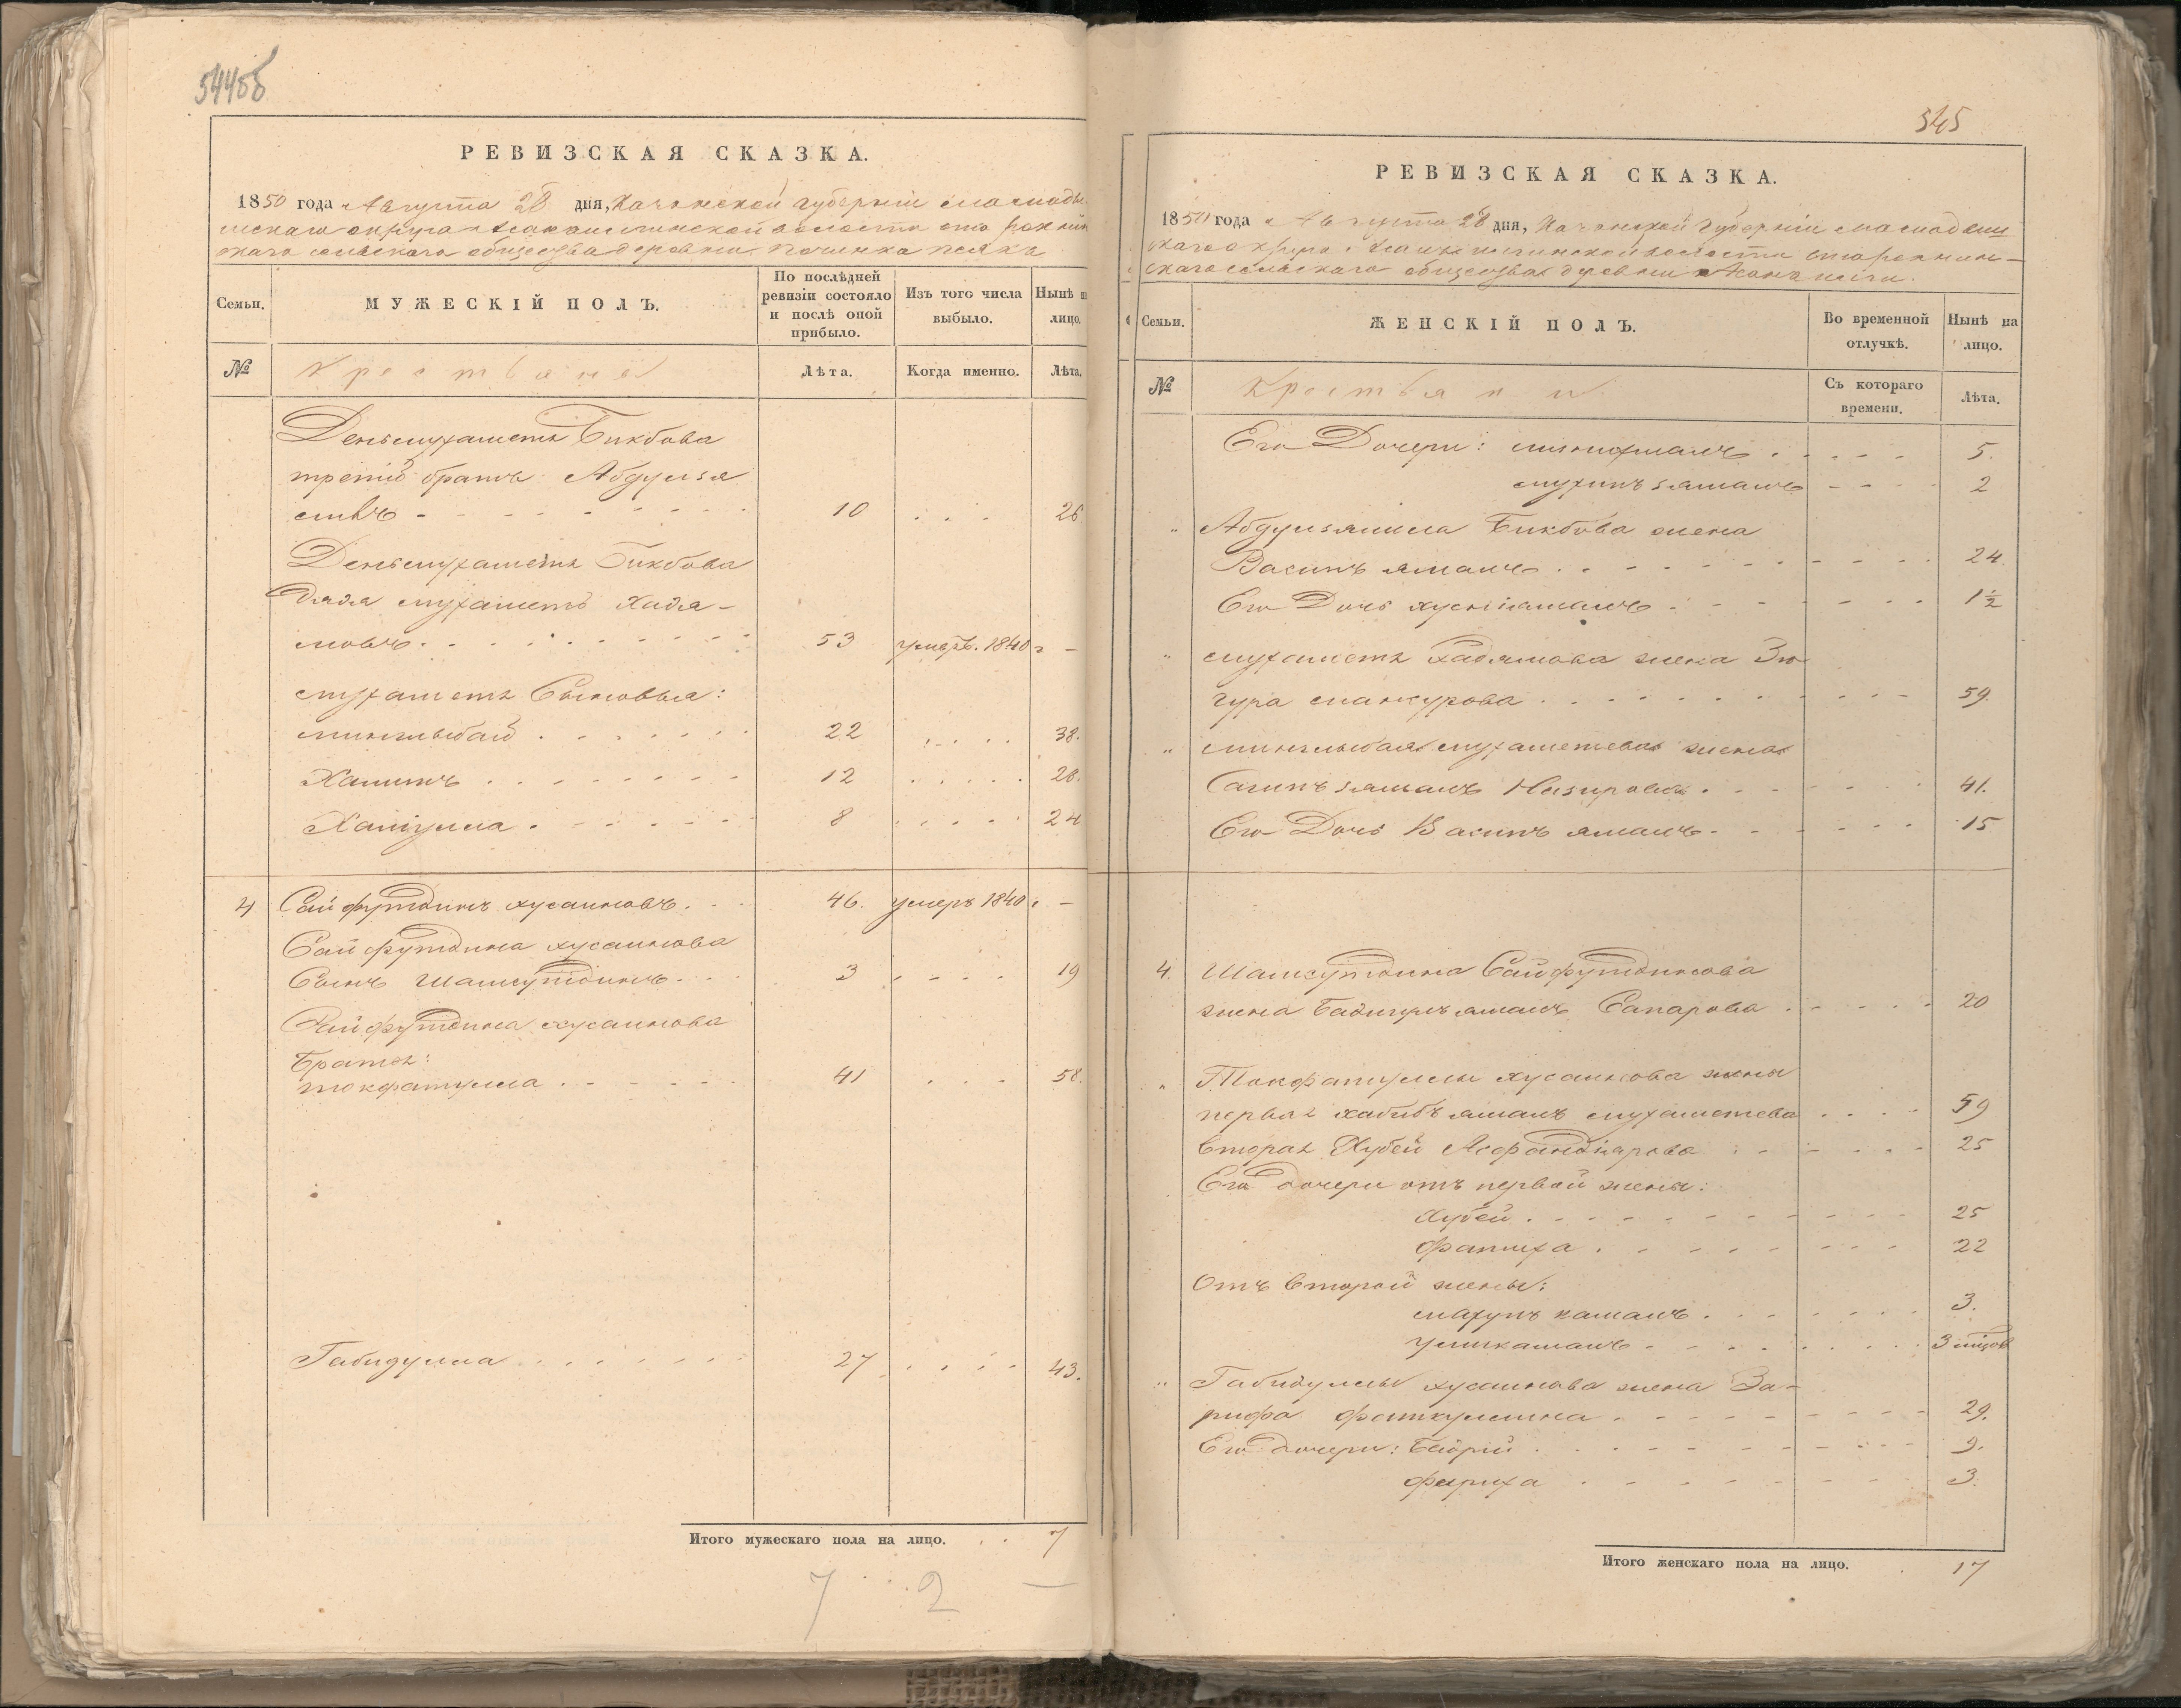 544об
РЕВИЗСКАЯ СКАЗКА.
1850 года Августа 28 дня, Казанской губерніи Мамады
шскаго округа волости
скаго сельскаго общества деревни Починка
Семьи.
МУЖЕСКІЙ ПОЛЪ.
По послѣдней ревизіи состояло и послѣ оной прибыло.
Изъ того числа выбыло.
Нынѣ н лицо.
№
Крестьяне
Лѣта.
Когда именно.
Лѣта.
Деньмухаметя Бикбова
третій братъ Абдулзя
лилъ 10 26
Деньмухаметя Бикбова
дядя Мухаметъ Хадя-
мовъ 53 умеръ. 1840 г —
Мухаметя Сыновья:
Минлыбай 22 38.
Халитъ 12 28.
Халіулла 8 24
4 Сайфутдинъ Хусаиновъ. 46. умеръ 1840 г —
Сайфутдина Хусаинова
Сынъ Шамсутдинъ 3 19
Сайфутдина Хусаинова
Братья:
Токфатулла 41 58.
Габидулла 27 43.
Итого мужескаго пола на лицо. 7
7 2 —
545
РЕВИЗСКАЯ СКАЗКА.
1850 года Августа 28 дня, Казанской Губерніи Мамадыш
скаго округа волости
скаго сельскаго общества деревни
Семьи.
ЖЕНСКІЙ ПОЛЪ.
Во временной отлучкѣ.
Нынѣ на лицо.
№
Крестьяне
Съ котораго времени.
Лѣта.
Его Дочери: 5.
2
" Абдулзялила Бикбова жена
Васипъ ямалъ 24.
Его Дочь Хуснiямалъ 1½
" Мухаметя Хадямова жена Зю-
гура Мансурова 59.
" Минлыбая Мухаметева жена
Сагипъ зямалъ Назирова 41.
Его Дочь Васипъ ямалъ 15
4. Шамсутдина Сайфутдинова
жена Бадигулъ ямалъ Сапарова 20
" Токфатуллы Хусаинова жены
первая Хабибъ ямалъ Мухаметева 59
вторая Хубей Асфандіярова 25
Его дочери отъ первой жены:
Хубей 25
Фатиха 22
Отъ второй жены:
Махупъ камалъ 3.
Уммкамалъ 3 мѣсяц
" Габидуллы Хусаинова жена За-
рифа Фаткуллина 29.
Его дочери: Бадрій 9.
Фариха 3.
Итого женскаго пола на лицо. 17